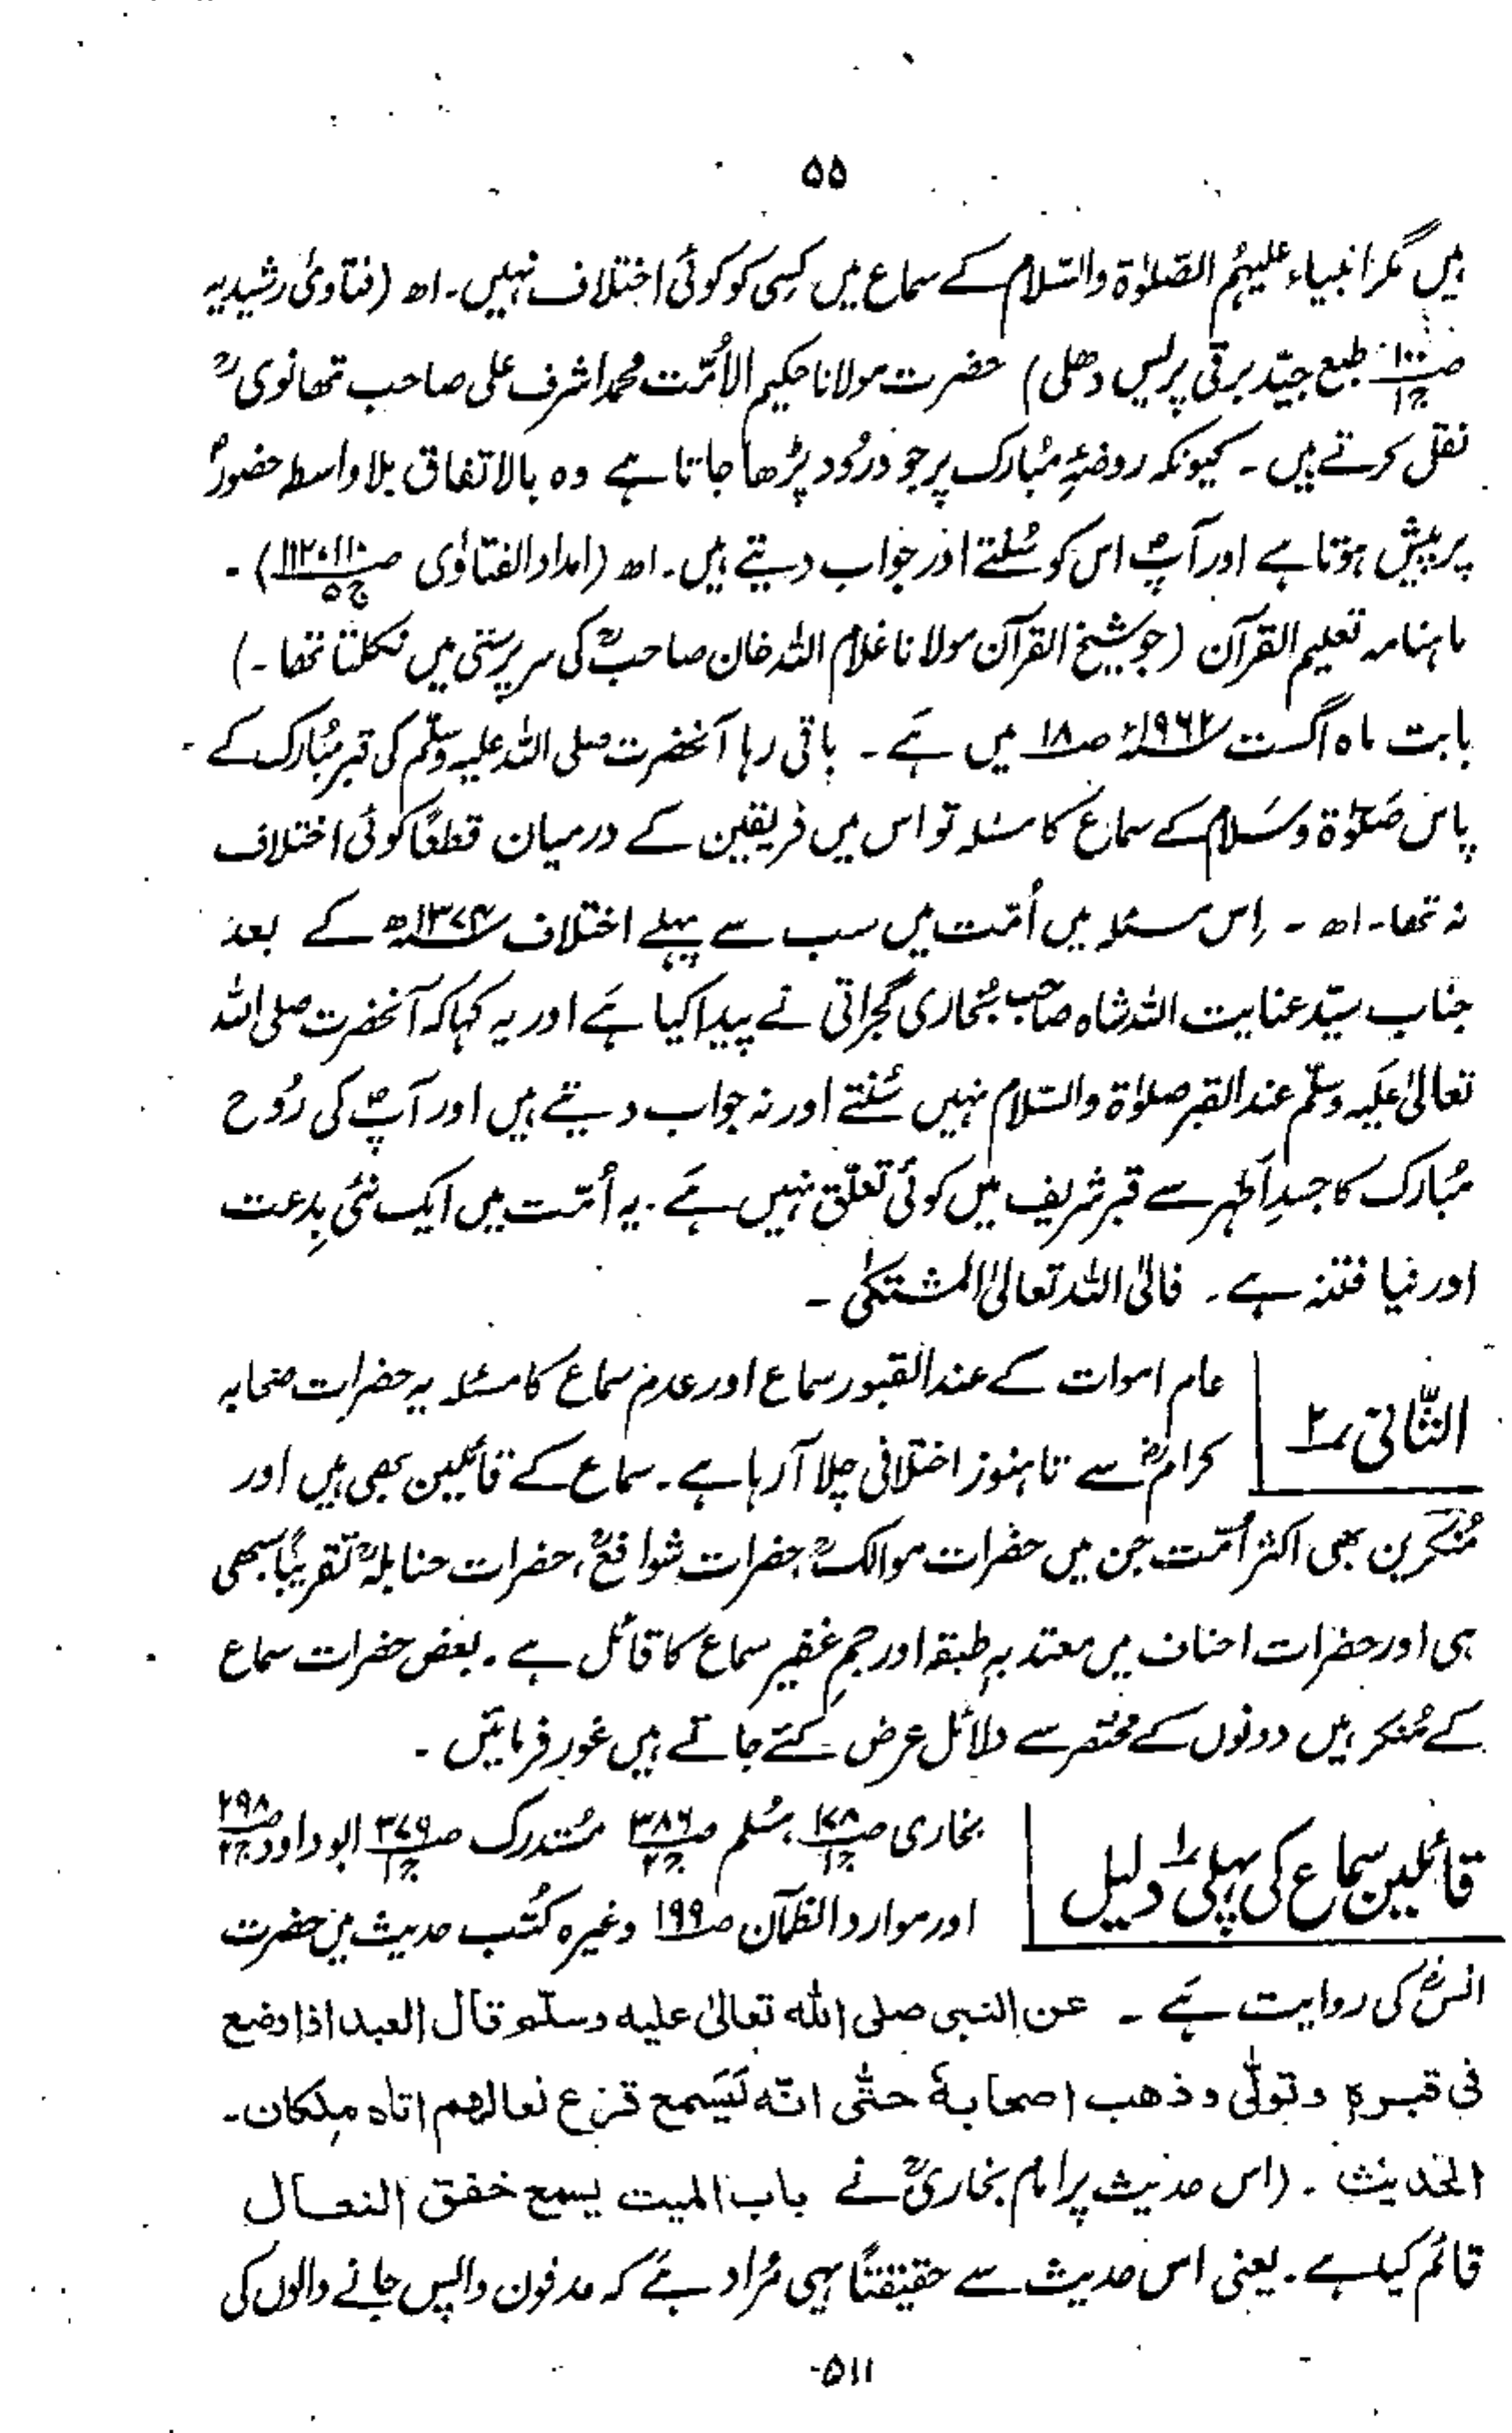 ۵۵
ہیں مگر انبیاء علیہم الصّلوٰۃ والسّلام کے سماع میں کسی کو کوئی اختلاف نہیں۔ اھ (فتاویٰ رشیدیہ
صـ۱۰۰ ج۱ طبع جیّد برقی پریس دھلی) حضرت مولانا حکیم الاُمّت محمد اشرف علی صاحب تھانوی ؒ
نقل کرتے ہیں۔ کیونکہ روضۂِ مُبارک پر جو درُود پڑھا جاتا ہے وہ بالاتفاق بلاواسطہ حضورؐ
پر پیش ہوتا ہے اور آپؐ اس کو سُنتے اور جواب دیتے ہیں۔ اھ (امداد الفتاوٰی صـ ج۵)۔
ماہنامہ تعلیم القرآن (جو شیخ القرآن مولانا غلام اللہ خان صاحبؒ کی سرپرستی میں نکلتا تھا۔)
بابت ماہ اگست ۱۹۶۲ء صـ۱۸ میں ہے۔ باقی رہا آنحضرت صلی اللہ علیہ وسلّم کی قبر مُبارک کے
پاس صَلوٰۃ و سَلام کے سماع کا مسئلہ تو اس میں فریقین کے درمیان قطعًا کوئی اختلاف
نہ تھا۔ اھ ۔ اِس مسئلہ میں اُمّت میں سب سے پہلے اختلاف ۱۳۷۴ھ کے بعد
جناب سیّد عنایت اللہ شاہ صاحب بُخاری گجراتی نے پیدا کیا ہے اور یہ کہا کہ آنحضرت صلی اللہ
تعالیٰ عَلَیہ وسلّم عند القبر صلوٰۃ والسّلام نہیں سُنتے اور نہ جواب دیتے ہیں اور آپؐ کی رُوح
مُبارک کا جسدِ اَطہر سے قبر شریف میں کوئی تعلّق نہیں ہَے۔ یہ اُمّت میں ایک نئی بِدعت
اور نیا فتنہ ہے۔ فالیٰ اللہ تعالیٰ المشتکٰی ۔
الثّانی ۲ عام اموات کے عند القبور سماع اور عدم سماع کا مسئلہ یہ حضرات صحابہ
کرامؓ سے تا ہنوز اختلافی چلا آ رہا ہے۔ سماع کے قائلین بھی ہیں اور
مُنکرین بھی اکثر اُمّت جن میں حضرات موالکؒ، حضرات شوافعؒ، حضرات حنابلہؒ تقریبًا سبھی
ہی اور حضرات احناف میں معتد بہٖ طبقہ اور جمِ غفیر سماع کا قائل ہے۔ بعض حضرات سماع
کے مُنکر ہیں دونوں کے مختصر سے دلائل عرض کئے جاتے ہیں غور فرمائیں ۔
قائلین سماع کی پہلی ۱ دلیل بخاری صـ۱۷۸ ج۱، مُسلم صـ۳۸۶ ج۲ مُستدرک صـ۳۷۹ ج۱ ابوداود صـ۲۹۸ ج۲
اور موارد الظمآن صـ۱۹۹ وغیرہ کُتب حدیث میں حضرت
انسؓ کی روایت ہَے ۔ عن النبی صلی اللہ تعالیٰ علیہ وسلّم قال العبد اذا وضع
فی قبرہٖ وتولّی و ذھب اصحابہٗ حتّٰی انّہ لَیَسمع قرع نعالھم اتاہ مِلکان۔
الحدیث ۔ (اس حدیث پر امام بخاریؒ نے باب المیت یسمع خفق النعال
قائم کیا ہے۔ یعنی اس حدیث سے حقیقتًا یہی مُراد ہَے کہ مدفون واپس جانے والوں کی
۵۱۱